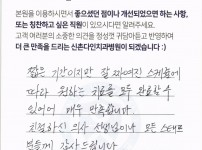 본원을 이용하시면서 좋으셨던 점이나 개선되었으면 하는 사항,
또는 칭찬하고 싶은 직원이 있으시다면 알려주세요.
고객 여러분의 소중한 의견을 정성껏 귀담아듣고 반영하여
더 큰 만족을 드리는 신촌다인치과병원이 되겠습니다 :)
짧은 기간이지만 잘 짜여진 스케쥴에
따라 원하는 치료를 모두 완료할 수
있어서 매우 만족합니다.
친절하신 의사 선생님이나 모든 스태프
분들께 감사드립니다